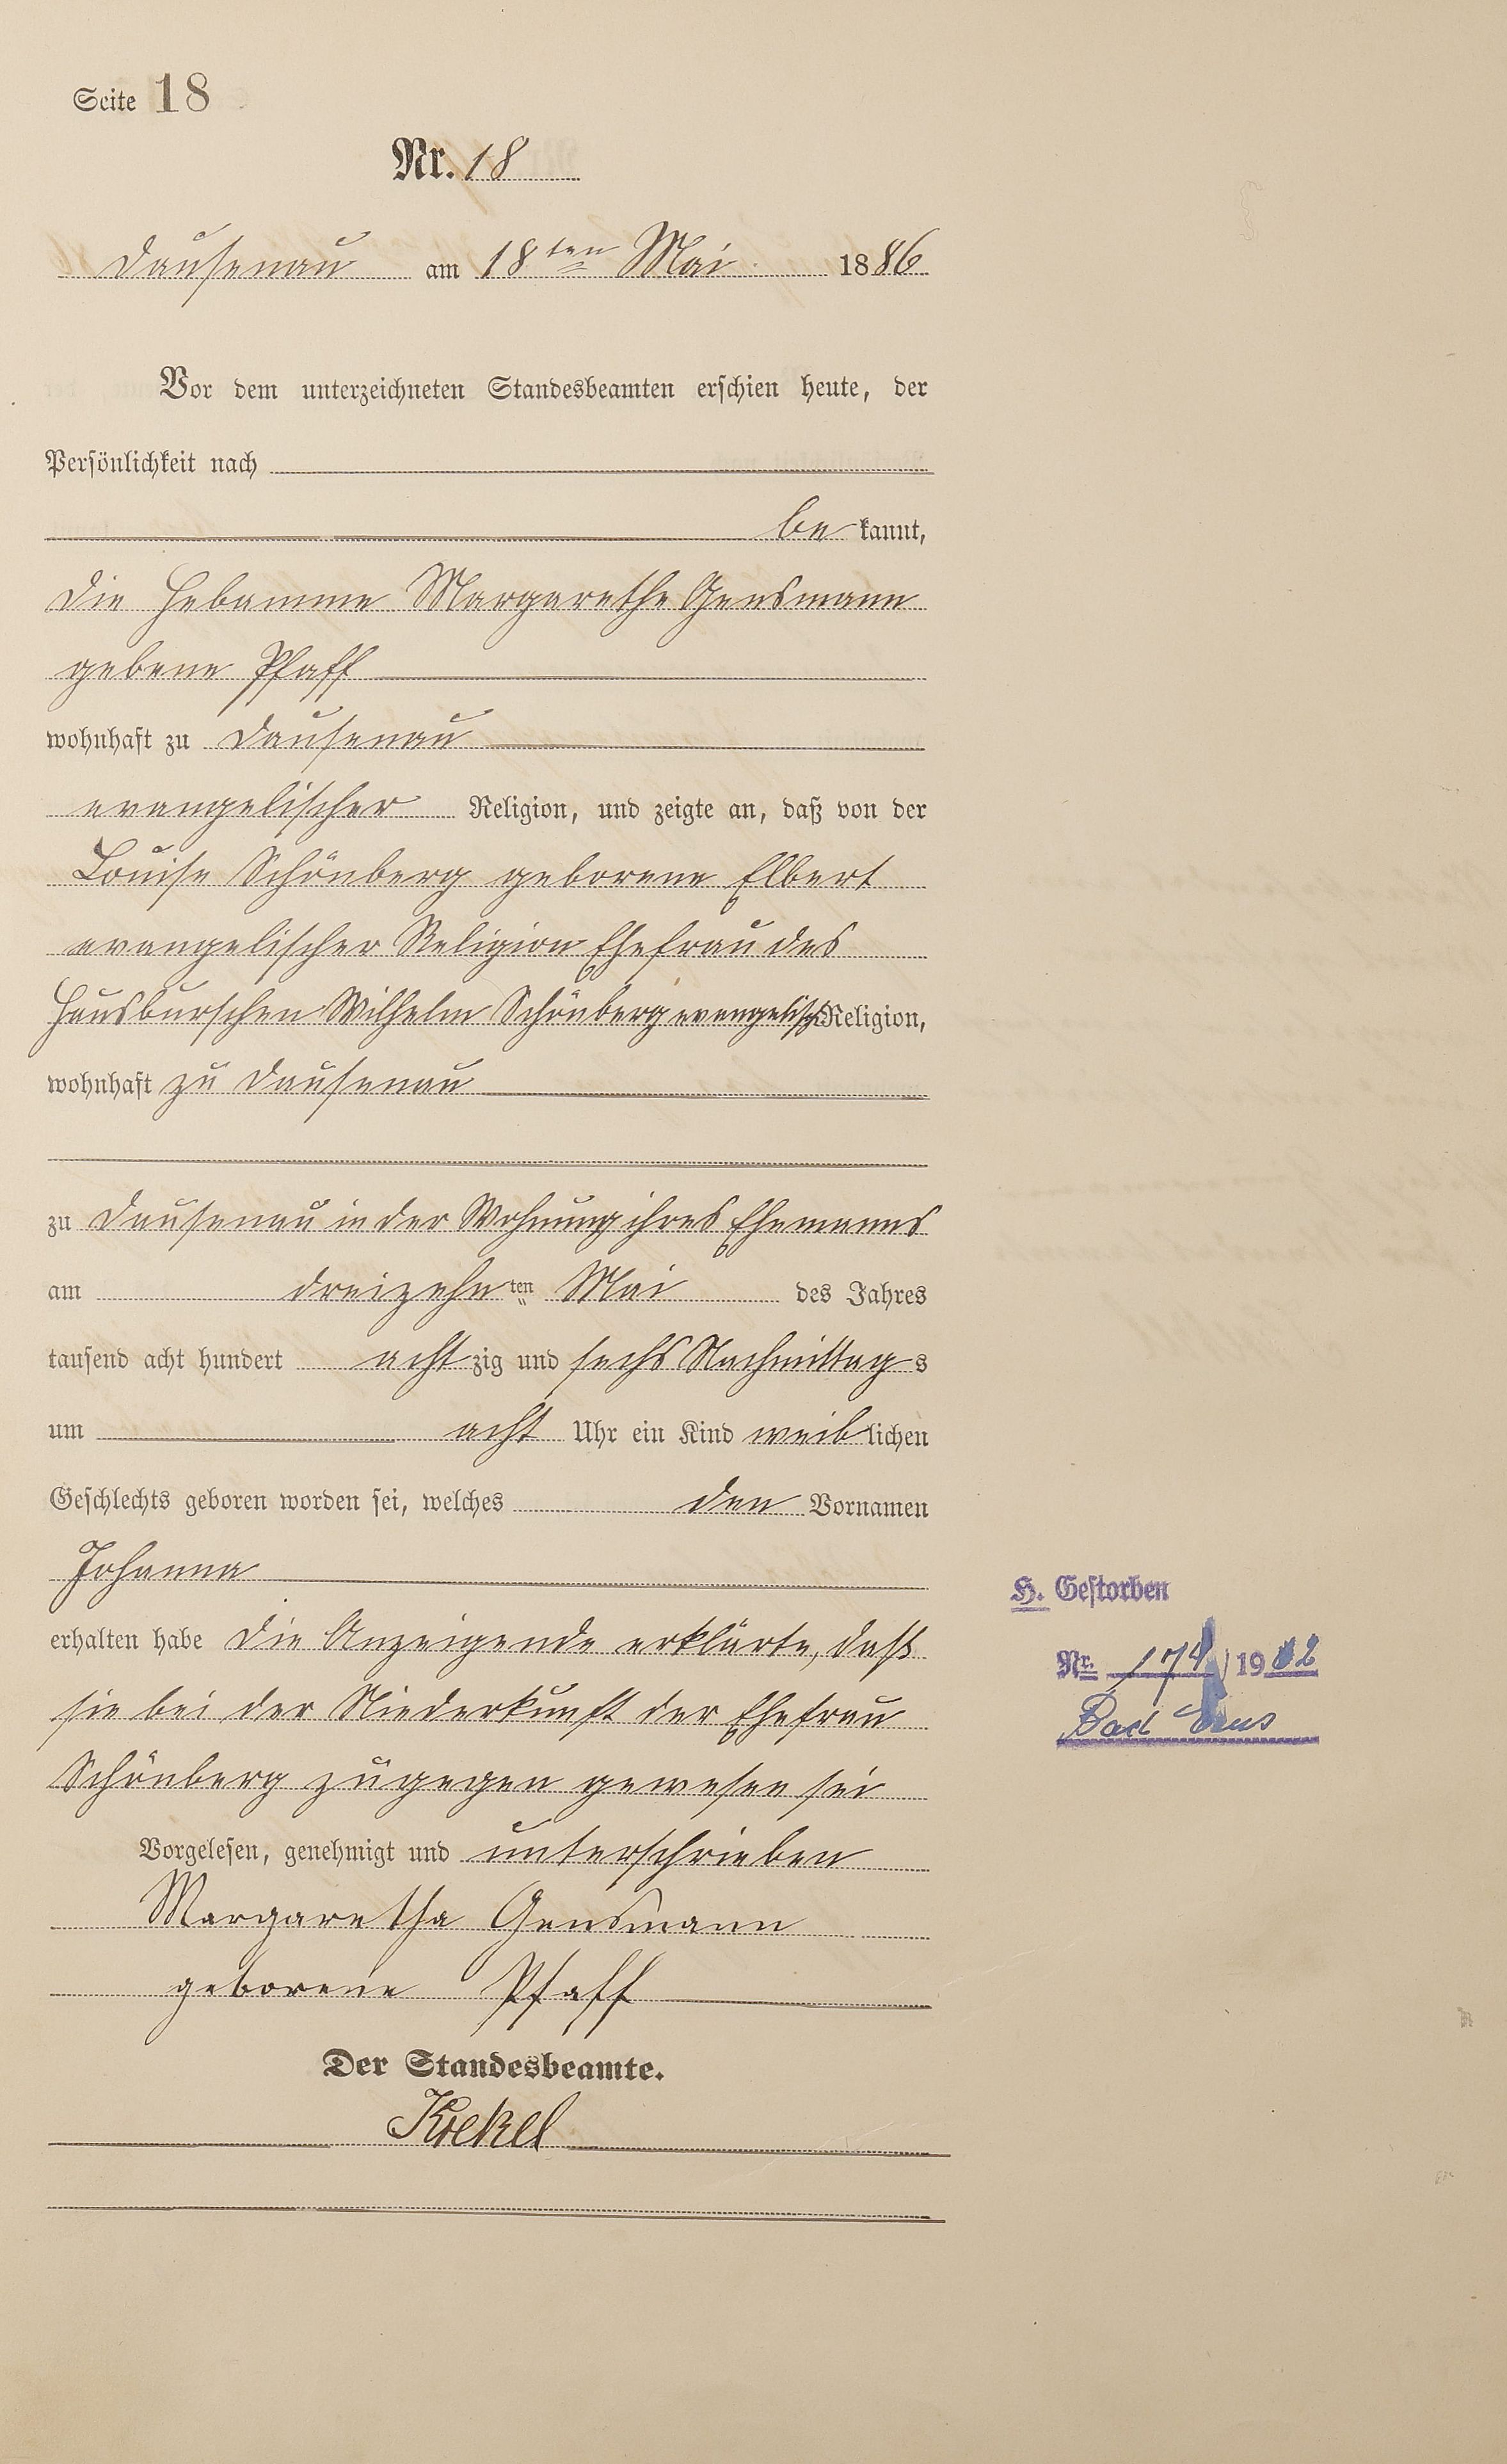 Seite 18
Nr. 18
Dausenau am 18ten Mai 1886
Vor dem unterzeichneten Standesbeamten erschien heute, der
Persönlichkeit nach
be kannt,
die Hebamme Margarethe Gensmann
gebene Pfaff
wohnhaft zu Dausenau
evangelischer Religion, und zeigte an, daß von der
Louise Schönberg geborene Elbert
evangelischer Religion Ehefrau des
Hausburschen Wilhelm Schönberg evangelisch Religion,
wohnhaft zu Dausenau
zu Dausenau in der Wohnung ihres Ehemanns
am dreizehnten Mai des Jahres
tausend acht hundert achtzig und sechs Nachmittags
um acht Uhr ein Kind weiblichen
Geschlechts geboren worden sei, welches den Vornamen
Johanna
H. Gestorben
erhalten habe Die Anzeigende erklärte, daß
Nr. 174/19
sie bei der Niederkunft der Ehefrau
Bad Ems
Schönberg zugegen gewesen sei
Vorgelesen, genehmigt und unterschrieben
Margaretha Gensmann
geborene Pfaff
Der Standesbeamte.